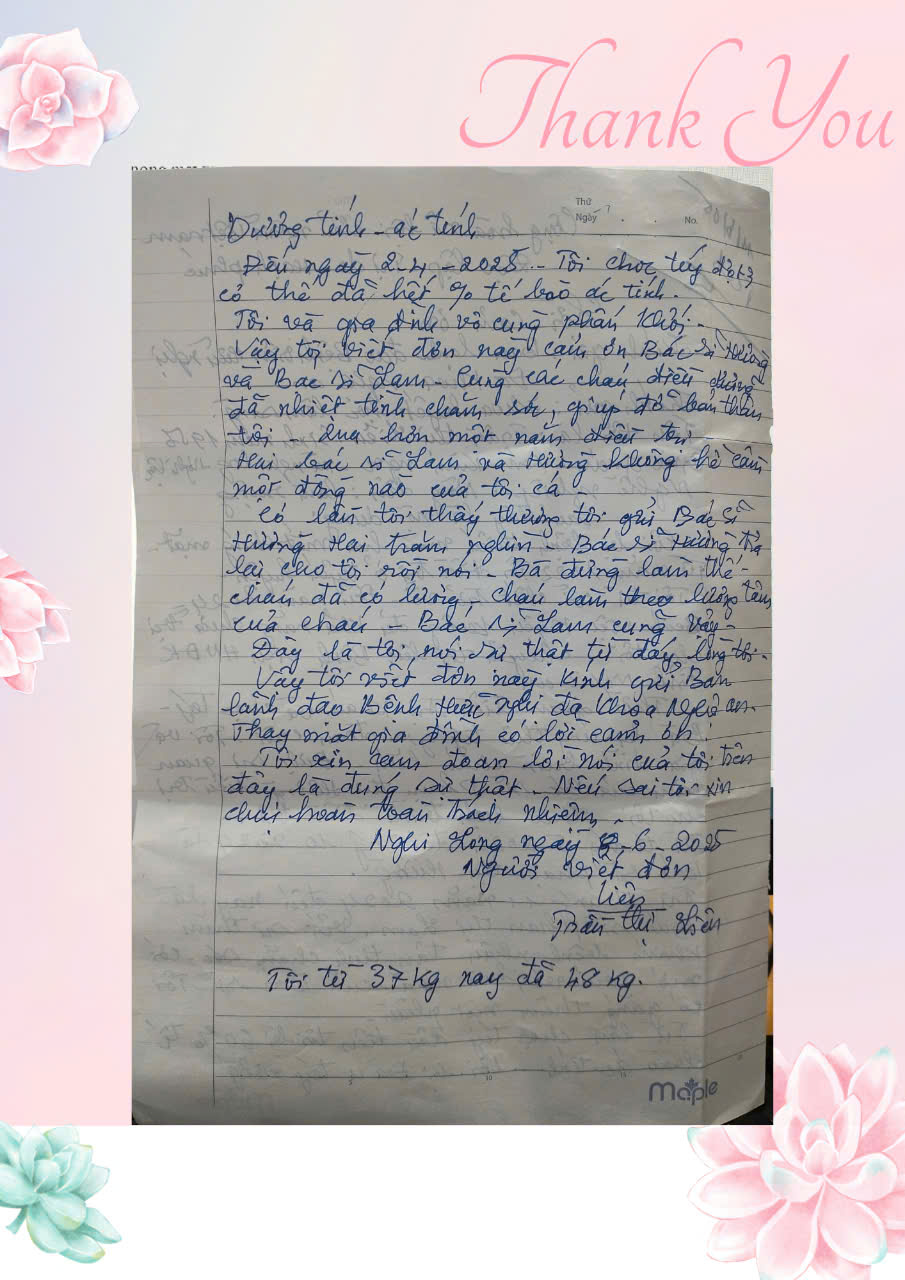 Thank You
Thứ
Ngày
No.
Dương tính - ác tính
Đến ngày 2-4-2025 - Tôi chọc tủy đợt 3
có thể đã hết % tế bào ác tính.
Tôi và gia đình vô cùng phấn khởi -
Vậy tôi viết đơn này cảm ơn Bác sĩ Hương
và Bác sĩ Lam - Cùng các cháu điều dưỡng
đã nhiệt tình chăm sóc, giúp đỡ bản thân
tôi - Qua hơn một năm điều trị
Hai bác sĩ Lam và Hương không hề cầm
một đồng nào của tôi cả -
Có lần tôi thấy thương tôi gửi Bác sĩ
Hương Hai trăm nghìn - Bác sĩ Hương trả
lại cho tôi rồi nói - Bà đừng làm thế -
cháu đã có lương, cháu làm theo lương tâm
của cháu - Bác sĩ Lam cũng vậy -
Đây là tôi nói sự thật từ đáy lòng tôi -
Vậy tôi viết đơn này kính gửi Ban
lãnh đạo Bệnh Hữu nghị đa khoa Nghệ an.
Thay mặt gia đình có lời cảm ơn!
Tôi xin cam đoan lời nói của tôi trên
đây là đúng sự thật - Nếu sai tôi xin
chịu hoàn toàn trách nhiệm -
Nghi Long ngày -6-2025
Người viết đơn
Liên
Trần thị Liên
Tôi từ 37kg nay đã 48kg.
maple